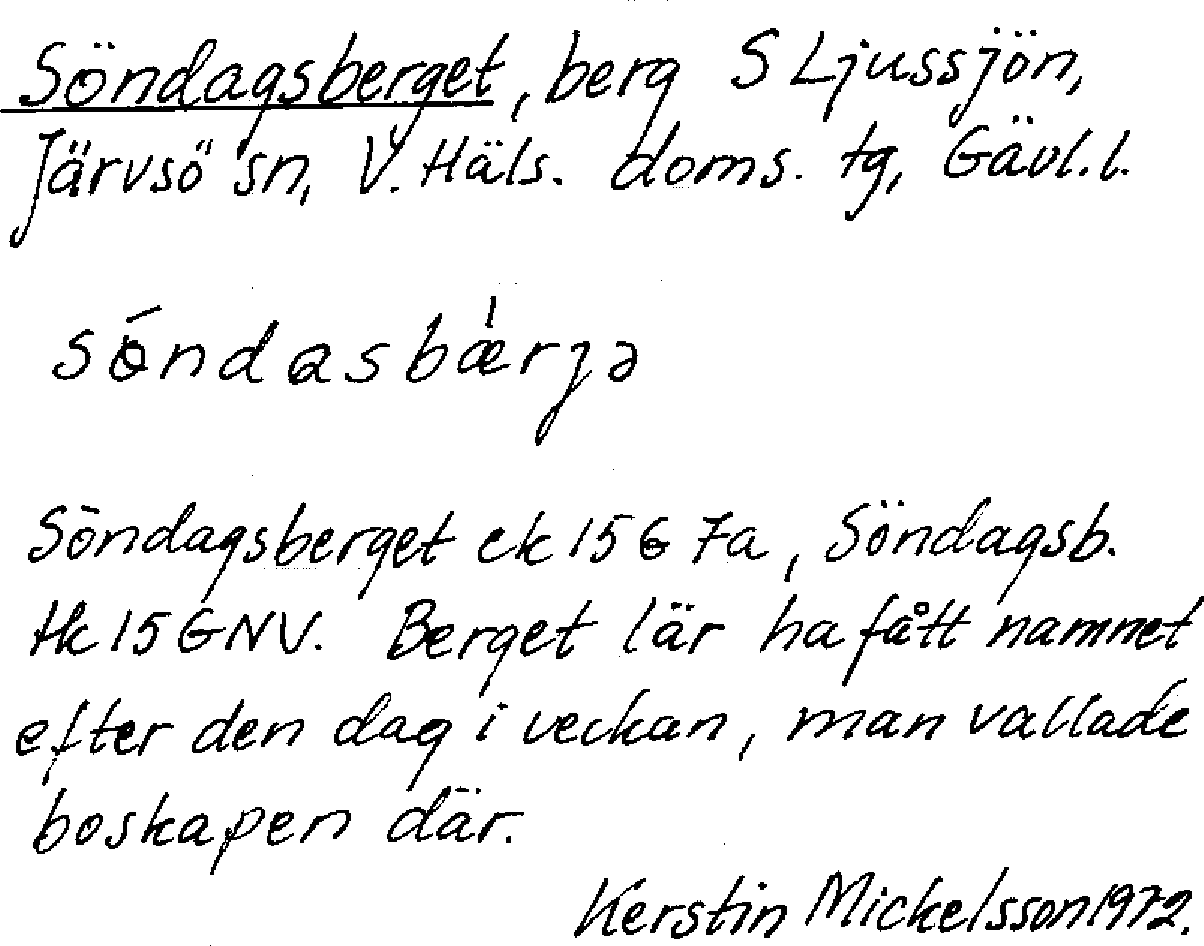 Söndagsberget, berg S Ljussjön,
Järvsö sn, V. Häls. doms. tg, Gävl. l.
sóndasbæ̀rjə
Söndagsberget ek 15 G 7a, Söndagsb.
tk 15 GNV. Berget lär ha fått namnet
efter den dag i veckan, man vallade
boskapen där.
Kerstin Mickelsson 1972.